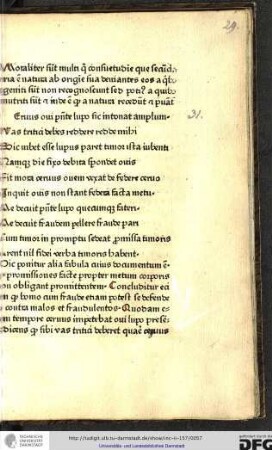 29.
Moraliter sūt multi q̄ consuetudie que secūda
ria ē natura ab origīe sua deuiantes eos a qb9
geniti sūt non recognoscunt sed poti9 a quib9
nutriti sūt ⁊ inde ē qp a natura recedūt ⁊
31.
Ceruus oui pn̄te lupo sic intonat amplum
Vas tritici debes reddere redde mihi
Hic iubet esse lupus paret timor ista iubenti
Namqz die fixo debita spondet ouis
Fit mora ceruus ouem vrget de federe
Inquit ouis non stant federa facta metu
Me decuit pn̄te lupo quecunqz fateri
Me decuit fraudem pellere fraude pari
Cum timor in promptu sedeat promissa timoris
Arent nil fidei verba timoris habent
Hic ponitur alia fabula cuius documentum ē
promissiones facte propter metum corporis
non obligant promittentem Concluditur
qp homo cum fraude etiam potest se defende
contra malos et fraudulentos Quodam
tempore ceruus impetebat oui lupo
dicens qp sibi vas tritici deberet quaē ceruus
TECHNISCHE UNIVERSITÄT DARMSTADT
http://tudigit.ulb.tu-darmstadt.de/show/inc-ii-157/0057
Universitäts- und Landesbibliothek Darmstadt
DFG